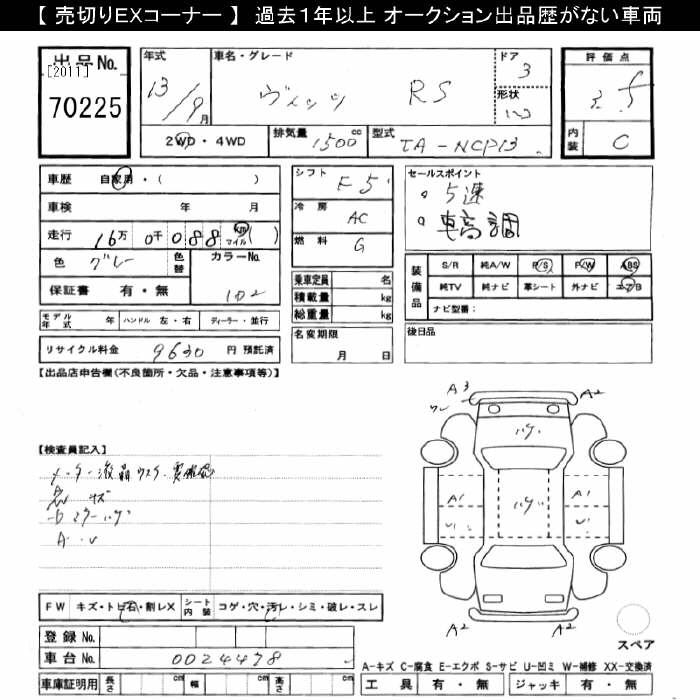 【 売切りEXコーナー 】 過去1年以上 オークション出品歴がない車両
出品No.
[2011]
70225
年式
13/9月
車名・グレード
ヴィッツ RS
ドア
3
形状
評価点
3.5
内装
C
2WD・4WD
排気量 1500 cc
型式 TA-NCP13
車歴 自家用・( )
車検 年 月
走行 16万 0千 088 km マイル ( )
色 グレー
色替
カラーNo. 102
保証書 有・無
シフト F5
冷房 AC
燃料 G
乗車定員 名
積載量 kg
総重量 kg
セールスポイント
・5速
・車高調
装備品
S/R 純A/W P/S P/W ABS
純TV 純ナビ 革シート 外ナビ エア/B
ナビ型番:
モデル年式 年 ハンドル 左・右 ディーラー・並行
名変期限
月 日
後日品
リサイクル料金 9630 円 預託済
【出品店申告欄(不良箇所・欠品・注意事項等)】
A3
A2
ハゲ
【検査員記入】
メーター液晶
ハゲ
A1
A1
A・U
FW キズ・トビ石・割レX
シート内装 コゲ・穴・汚レ・シミ・破レ・スレ
A2
A2
スペア
登録No.
車台No. 0024478
A-キズ C-腐食 E-エクボ S-サビ U-凹ミ W-補修 XX-交換済
車庫証明用 長さ cm 幅 cm 高さ cm
工具 有・無 ジャッキ 有・無